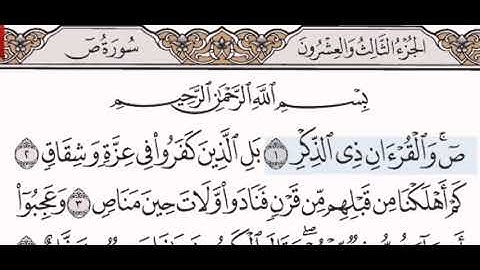 الجزء الثالث والعشرون
سورة ص
بِسْمِ اللَّهِ الرَّحْمَٰنِ الرَّحِيمِ
صٓ ۚ وَالْقُرْءَانِ ذِى الذِّكْرِ ١ بَلِ الَّذِينَ كَفَرُوا۟ فِى عِزَّةٍ وَشِقَاقٍ ٢
كَمْ أَهْلَكْنَا مِن قَبْلِهِم مِّن قَرْنٍ فَنَادَوا۟ وَّلَاتَ حِينَ مَنَاصٍ ٣ وَعَجِبُوٓا۟